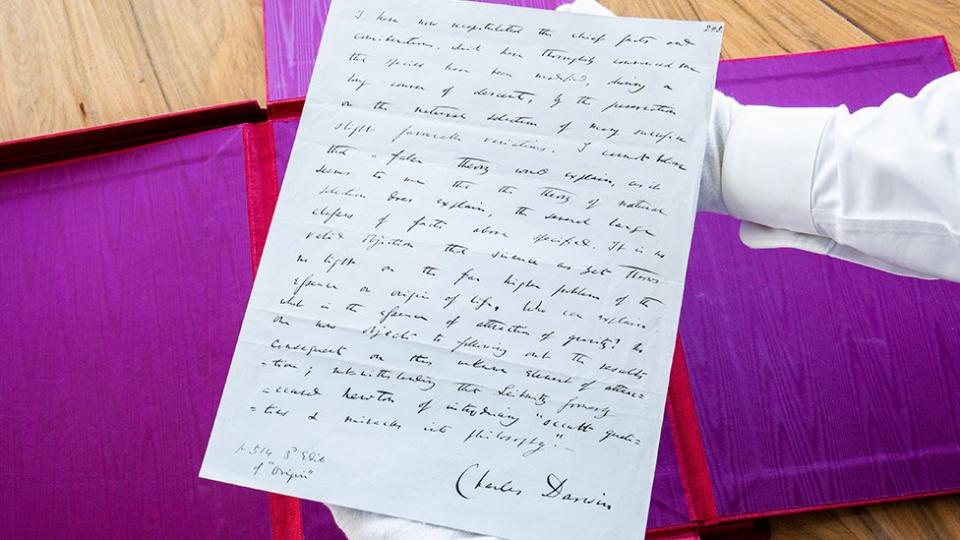 I have now recapitulated the chief facts and
considerations, which have thoroughly convinced me
that species have been modified, during a
long course of descent, by the preservation
or the natural selection of many successive
slight favourable variations. I cannot believe
that a false theory would explain, as it
seems to me that the theory of natural
selection does explain, the several large
classes of facts above specified. It is no
valid objection that science as yet throws
no light on the far higher problem of the
essence or origin of life. Who can explain
what is the essence of attraction of gravity? No
one now objects to following out the results
consequent on this unknown element of attrac=
=tion; notwithstanding that Leibnitz formerly
accused Newton of introducing "occult quali=
=ties & miracles into philosophy".—
p 514 3d Edit
of "Origin"
Charles Darwin